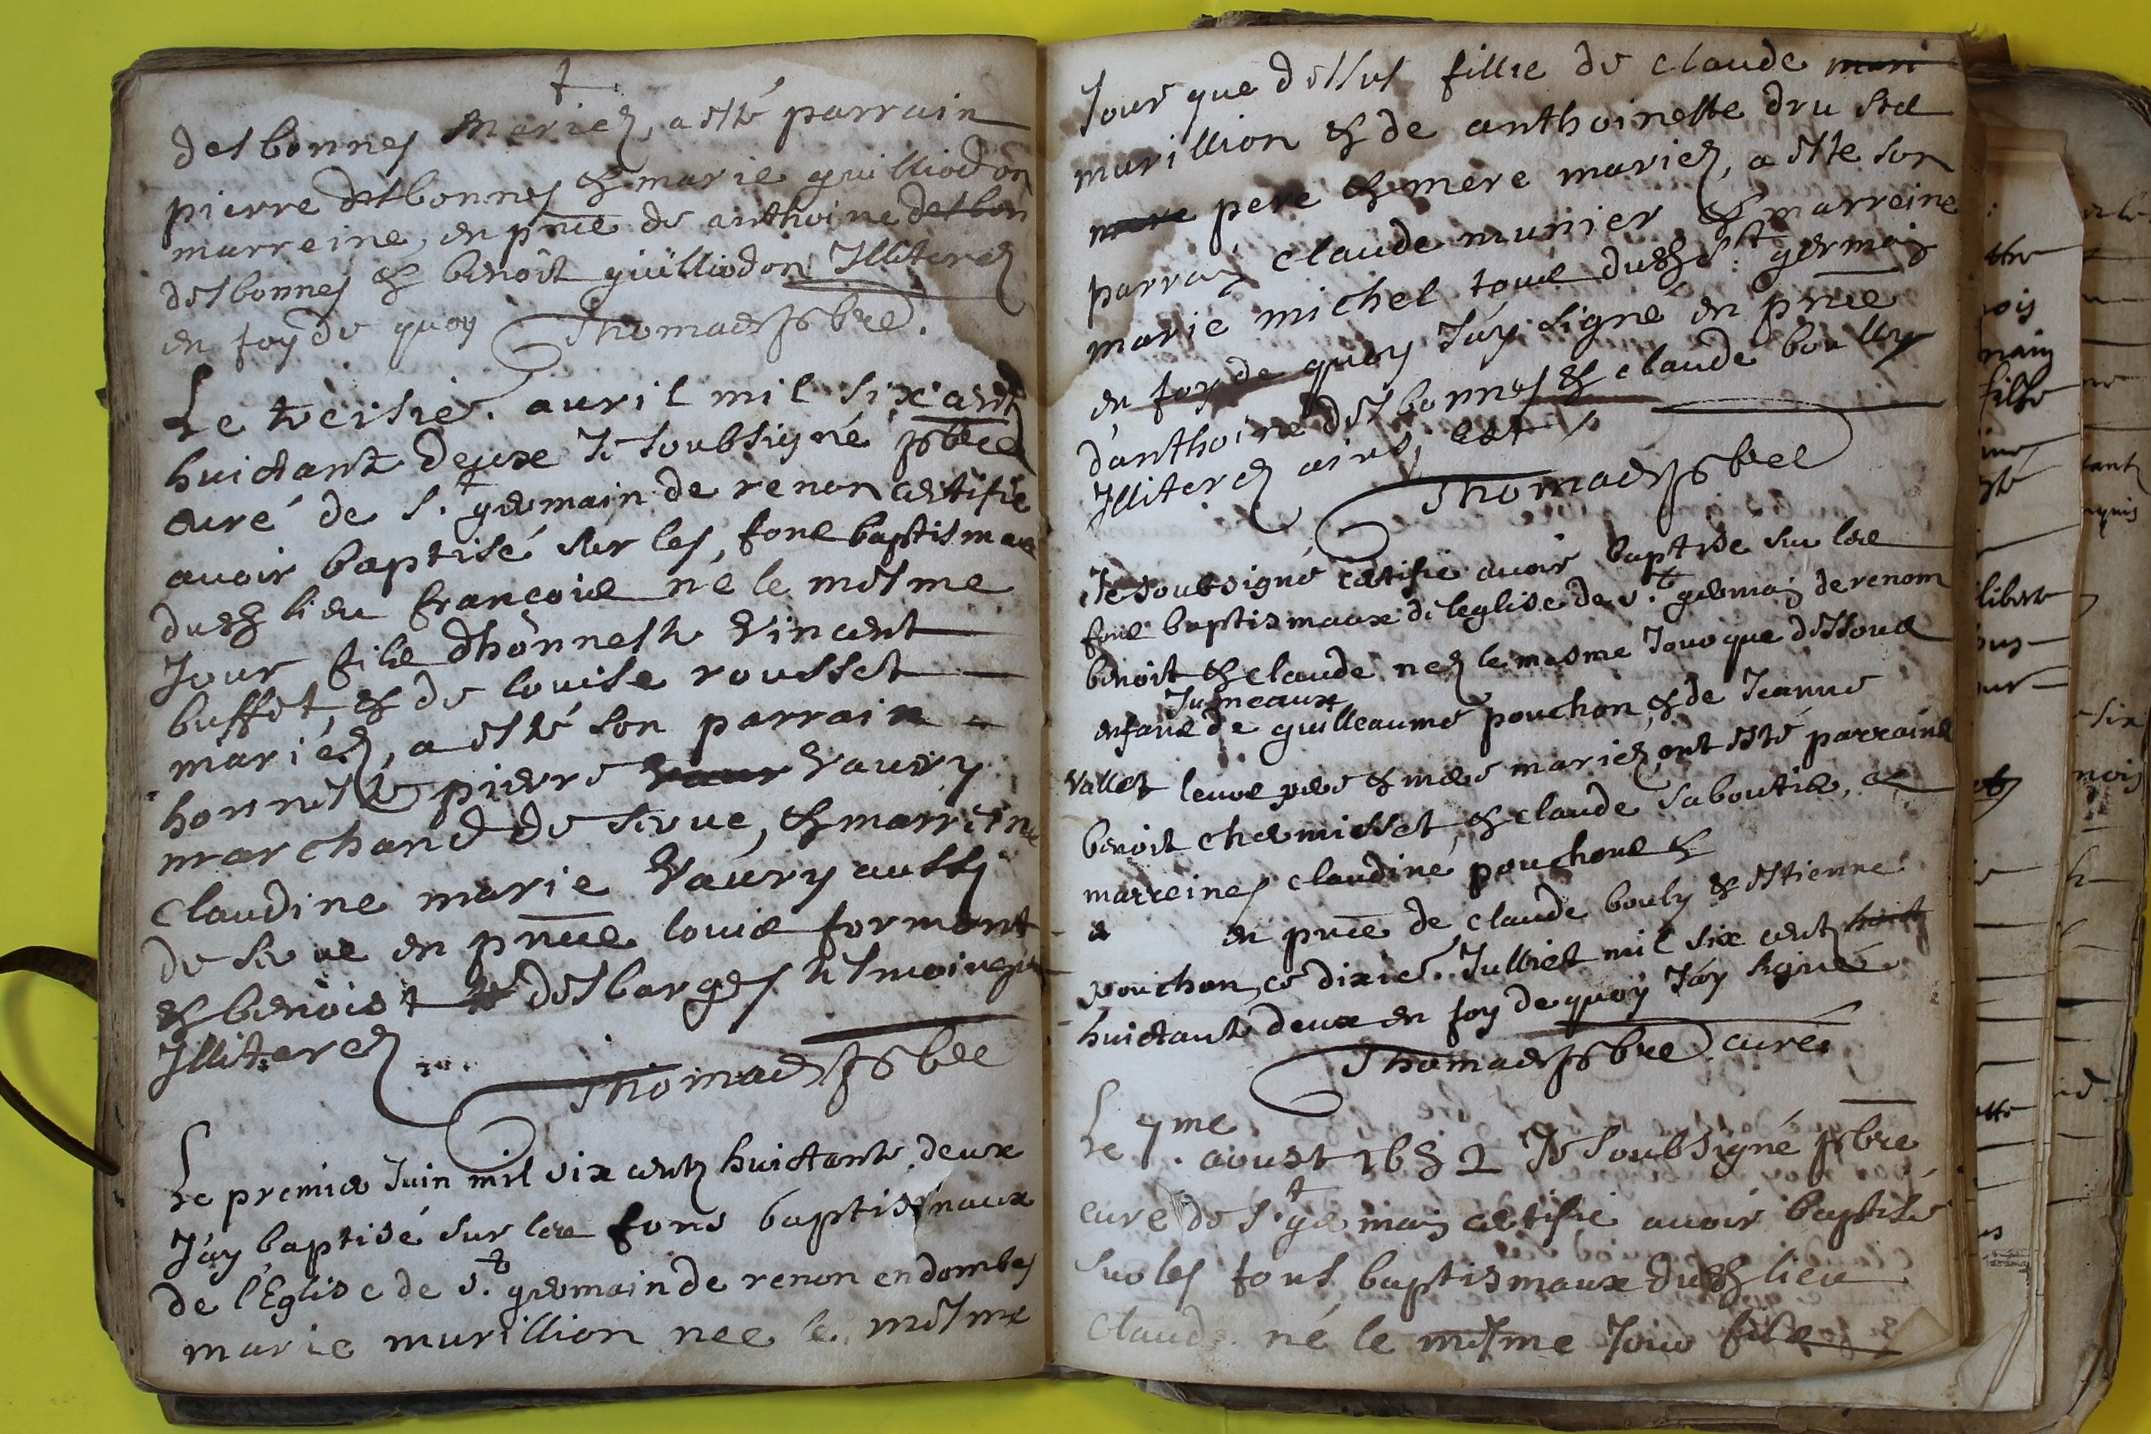 †
desbonnes mariez, a esté parrain
pierre desbonnes & marie guilliodon
marreine, en pnce de anthoine desbon
desbonnes & benoit guilliodon Illiterez
en foy de quoy Thomas pbre.
Le treisie. auril mil six cent
huictante deux Je soubsigné pbre
curé de s.t germain de renon certifie
avoir baptisé sur les fons baptismaux
dud lieu françois né le mesme
Jour fils dhonneste Vincent
buffet, & de louise rousset
mariéz, a esté son parrain
honneste pierre Vaury
marchand de , & marreine
Claudine marie Vaury aussy
de en pnce louis formont
& benoist desbarges tesmoings
Illiterez
Thomas pbre
Le premier Juin mil six centz huictante deux
J'ay baptisé sur les fons baptismaux
de l'Eglise de s.t germain de renon en dombes
marie murillion nee le mesme
Jour que dessus fillie de claude
murillion & de anthoinette dru ses
pere & mere mariez, a este son
parrain claude munier & marreine
marie michel tous dud s.t germain
en foy de quoy J'ay signé en pnce
d'anthoine desbonnes & claude boully
Illiterez ainsi est
Thomas pbre
Je soubsigné certifie avoir baptisé sur les
fons baptismaux de leglise de s.t germain de renom
benoit & claude nez le mesme Jour que dessous
Jumeaux
enfans de guilleaume pouchon & de Jeanne
Vallet leurs pere & mere mariez, ont esté parrains
benoit chermisset, & claude saboutie, &
marreines claudine pouchons &
en pnce de claude bouly & estienne
pouchon, ce dixie. Julliet mil six centz
huictante deux en foy de quoy J'ay signé
Thomas pbre curé
Le 7me. aoust 1682 Je soubsigné pbre
curé de s.t germain certifie avoir baptisé
sur les fons baptismaux dud lieu
Claude né le mesme Jour fils